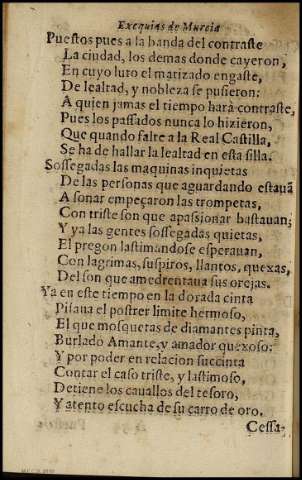 Exequias de Murcia
Puestos pues a la banda del contraste
La ciudad, los demas donde cayeron,
En cuyo luto el matizado engaste,
De lealtad, y nobleza se pusieron:
A quien jamas el tiempo harà contraste,
Pues los passados nunca lo hizieron,
Que quando falte a la Real Castilla,
Se ha de hallar la lealtad en esta silla.
Sossegadas las maquinas inquietas
De las personas que aguardando estauã
A sonar empeçaron las trompetas,
Con triste son que apassionar bastauan;
Y ya las gentes sossegadas quietas,
El pregon lastimandose esperauan,
Con lagrimas, suspiros, llantos, quexas,
Del son que amedrentaua sus orejas.
Ya en este tiempo en la dorada cinta
Pisaua el postrer limite hermoso,
El que mosquetas de diamantes pinta,
Burlado Amante, y amador quexoso:
Y por poder en relacion succinta
Contar el caso triste, y lastimoso,
Detiene los cauallos del tesoro,
Y atento escucha de su carro de oro.
Cessa-